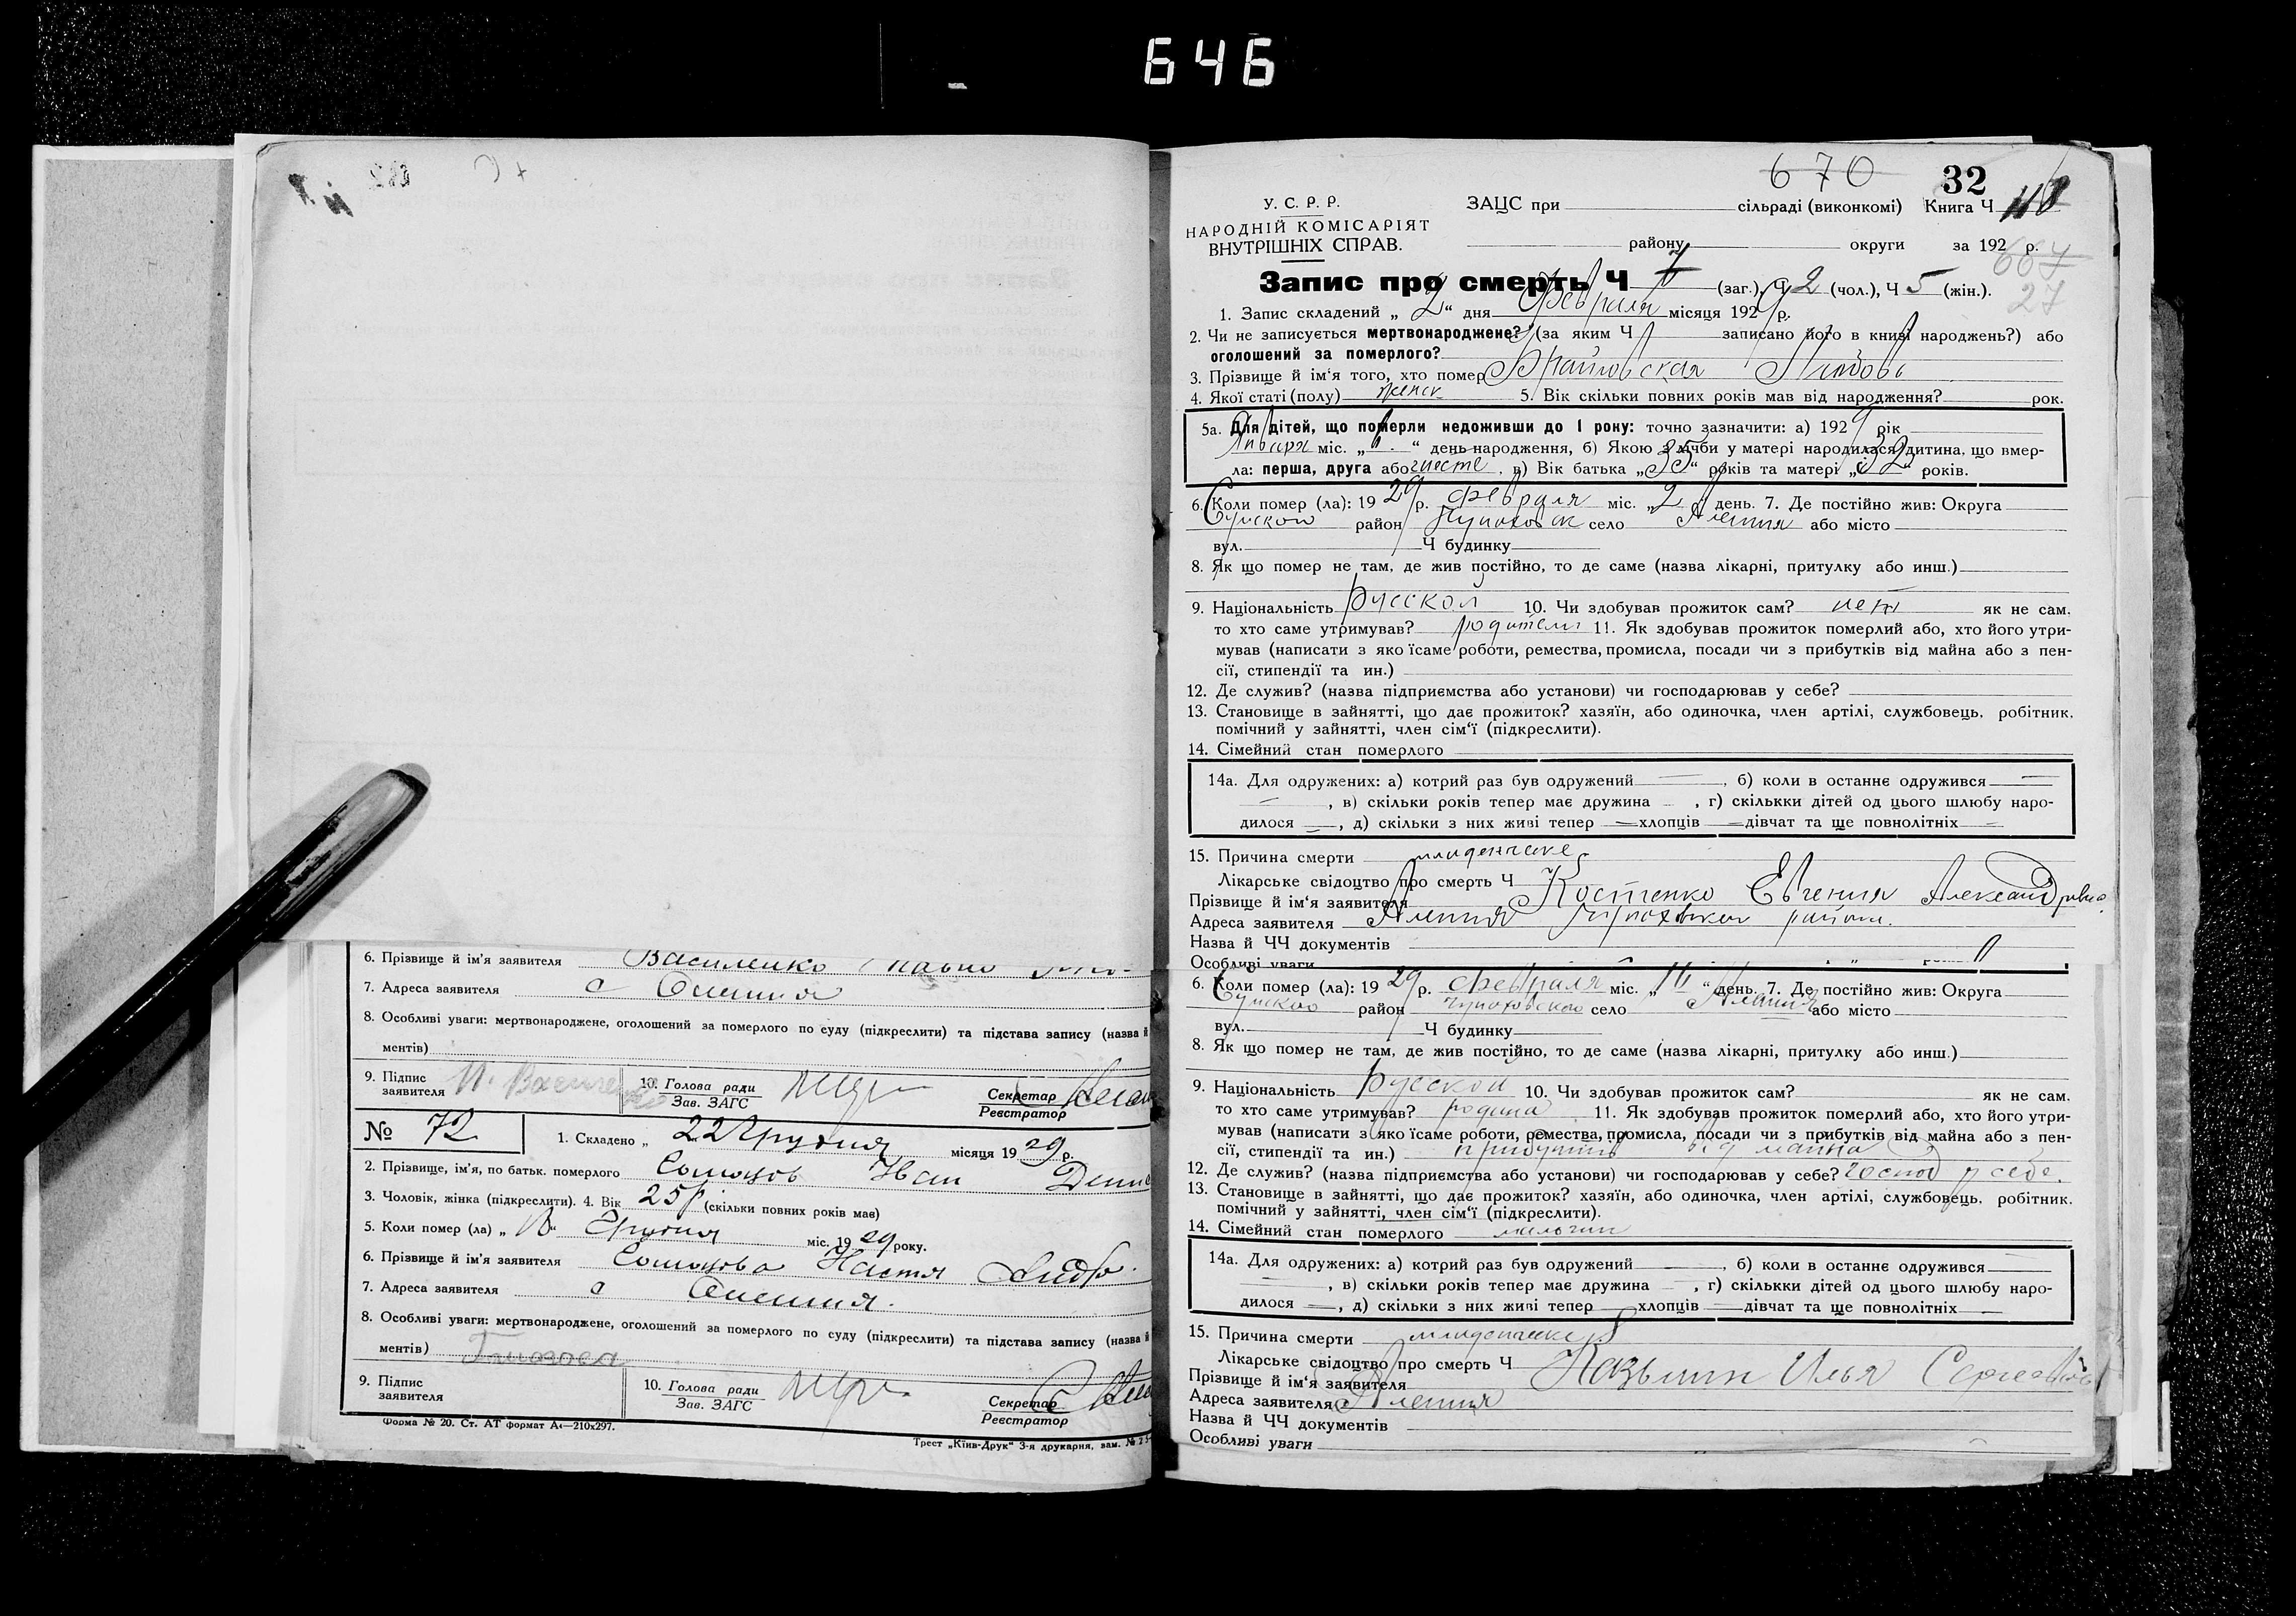 646
6. Прізвище й ім'я заявителя Василенко
7. Адреса заявителя с Олешня
8. Особливі уваги: мертвонароджене, оголошений за померлого по суду (підкреслити) та підстава запису (назва й
ментів)
9. Підпис заявителя 10. Голова ради Зав. ЗАГС Секретар Реєстратор
№ 72 1. Складено „ 22 Грудня місяця 19 29 р.
2. Прізвище, ім'я, по батьк. померлого Іван
3. Чоловік, жінка (підкреслити). 4. Вік 25 р (скільки повних років має)
5. Коли помер (ла) „ Грудня міс. 19 29 року.
6. Прізвище й ім'я заявителя Настя
7. Адреса заявителя с Олешня.
8. Особливі уваги: мертвонароджене, оголошений за померлого по суду (підкреслити) та підстава запису (назва й
ментів)
9. Підпис заявителя 10. Голова ради Зав. ЗАГС Секретар Реєстратор
Форма № 20. Ст. АТ формат А4—210х297.
Трест „Київ-Друк" 3-я друкарня, зам. №
670 32
У. С. Р. Р. ЗАЦС при сільраді (виконкомі) Книга Ч
НАРОДНІЙ КОМІСАРІЯТ
ВНУТРІШНІХ СПРАВ. району округи за 192 р.
667
27
Запис про смерть Ч (заг.), Ч 2 (чол.), Ч 5 (жін.).
1. Запис складений „ 2 " дня Февраля місяця 192 9 р.
2. Чи не записується мертвонароджене? (за яким Ч записано його в книзі народжень?) або
оголошений за померлого?
3. Прізвище й ім'я того, хто помер Любовь
4. Якої статі (полу) женск 5. Вік скільки повних років мав від народження? рок.
5а. Для дітей, що померли недоживши до 1 року: точно зазначити: а) 192 9 рік
Января міс. „ " день народження, б) Якою з лічби у матері народилася дитина, що вмер-
ла: перша, друга або шесте, в) Вік батька „ 35 " років та матері „ 32 " років.
6. Коли помер (ла): 19 29 р. февраля міс. „ 2 " день. 7. Де постійно жив: Округа
Сумской район село Алешня або місто
вул. Ч будинку
8. Як що помер не там, де жив постійно, то де саме (назва лікарні, притулку або инш.)
9. Національність Русской 10. Чи здобував прожиток сам? нет як не сам,
то хто саме утримував? родители 11. Як здобував прожиток померлий або, хто його утри-
мував (написати з яко їсаме роботи, ремества, промисла, посади чи з прибутків від майна або з пен-
сії, стипендії та ин.)
12. Де служив? (назва підприємства або установи) чи господарював у себе?
13. Становище в зайнятті, що дає прожиток? хазяїн, або одиночка, член артілі, службовець, робітник.
помічний у зайнятті, член сім'ї (підкреслити).
14. Сімейний стан померлого
14а. Для одружених: а) котрий раз був одружений —, б) коли в останнє одружився —
—, в) скільки років тепер має дружина —, г) скількки дітей од цього шлюбу наро-
дилося —, д) скільки з них живі тепер — хлопців — дівчат та ще повнолітніх —
15. Причина смерти
Лікарське свідоцтво про смерть Ч
Прізвище й ім'я заявителя Костенко Евгения
Адреса заявителя Алешня района.
Назва й ЧЧ документів
Особливі уваги
6. Коли помер (ла): 19 29 р. февраля міс. „ " день. 7. Де постійно жив: Округа
Сумской район село Алешня або місто
вул. Ч будинку
8. Як що помер не там, де жив постійно, то де саме (назва лікарні, притулку або инш.)
9. Національність Русской 10. Чи здобував прожиток сам? як не сам,
то хто саме утримував? родина 11. Як здобував прожиток померлий або, хто його утри-
мував (написати з яко їсаме роботи, ремества, промисла, посади чи з прибутків від майна або з пен-
сії, стипендії та ин.) від майна
12. Де служив? (назва підприємства або установи) чи господарював у себе? господ у себе.
13. Становище в зайнятті, що дає прожиток? хазяїн, або одиночка, член артілі, службовець, робітник.
помічний у зайнятті, член сім'ї (підкреслити).
14. Сімейний стан померлого
14а. Для одружених: а) котрий раз був одружений —, б) коли в останнє одружився —
—, в) скільки років тепер має дружина —, г) скількки дітей од цього шлюбу наро-
дилося —, д) скільки з них живі тепер — хлопців — дівчат та ще повнолітніх —
15. Причина смерти
Лікарське свідоцтво про смерть Ч
Прізвище й ім'я заявителя Илья
Адреса заявителя Алешня
Назва й ЧЧ документів
Особливі уваги